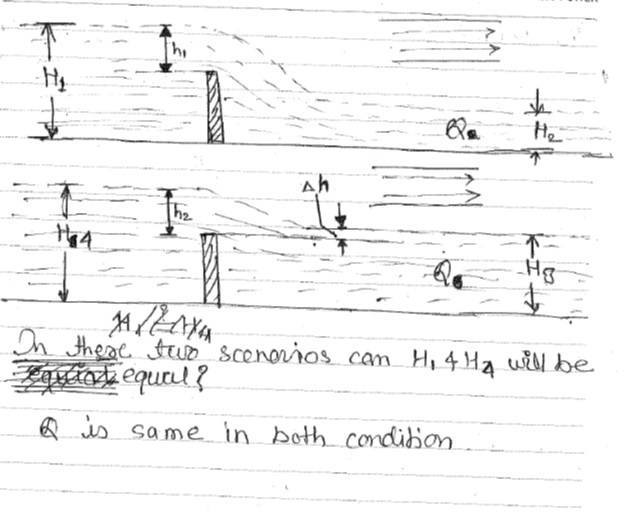 h₁
H₁
Q
H₂
Δh
h₂
H4
Q
H3
In these two scenarios can H₁ & H4 will be
equal?
Q is same in both condition